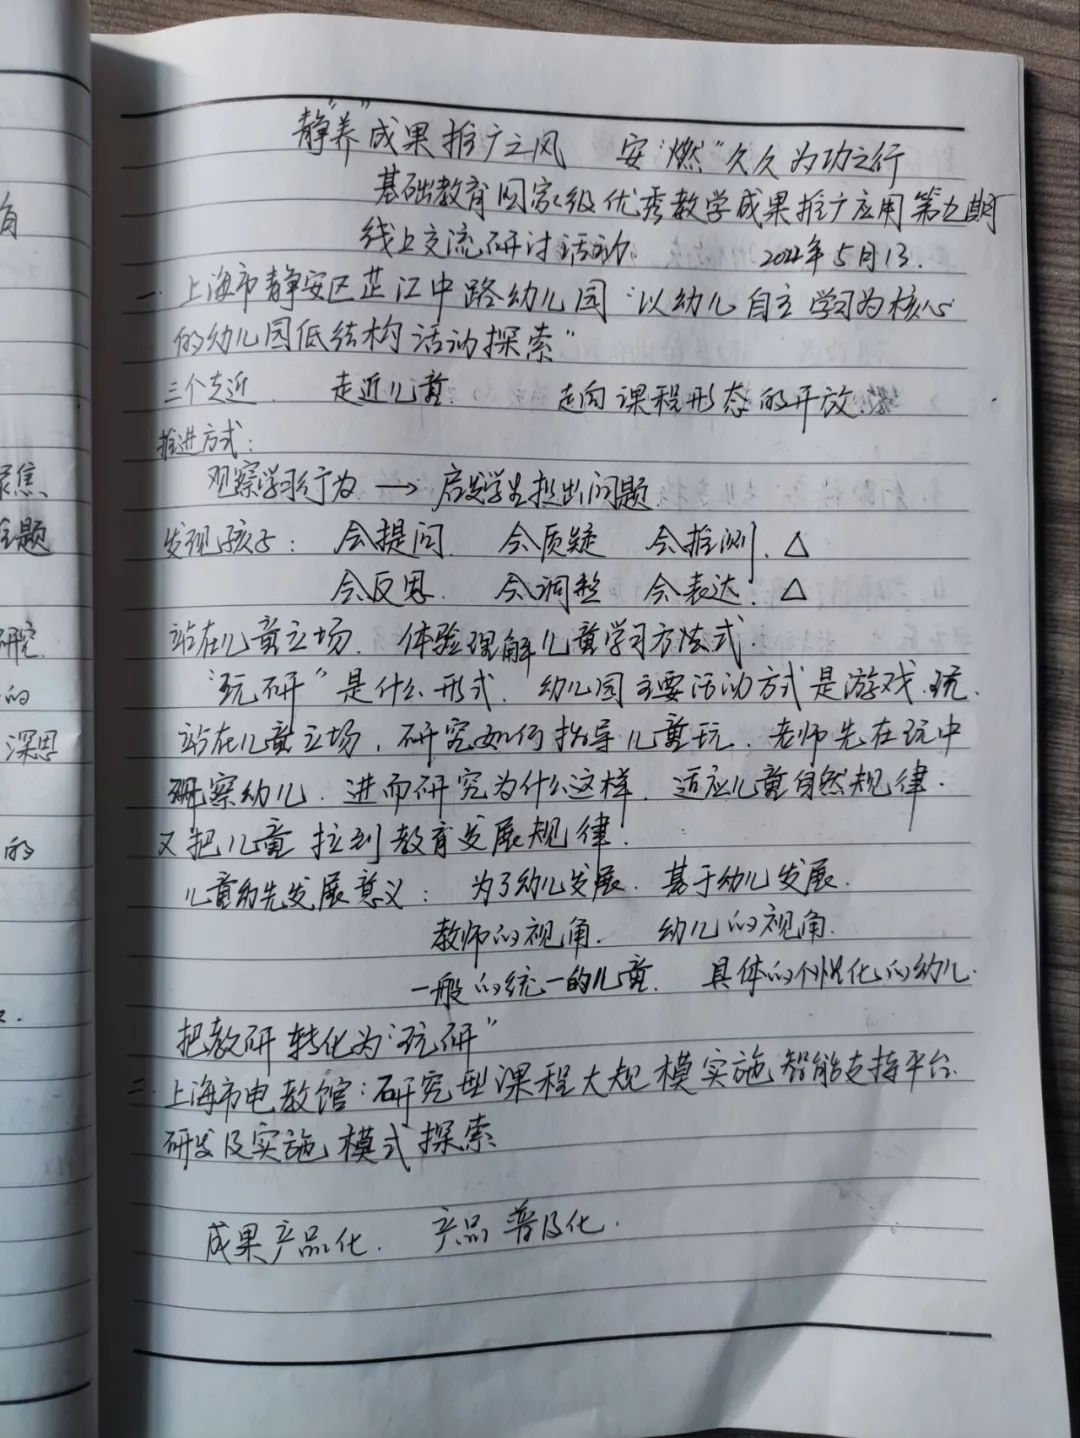 静“养”成果推广之风 安“燃”久久为功之行
基础教育国家级优秀教学成果推广应用第九期
线上交流研讨活动. 2022年5月13.
一.上海市静安区芷江中路幼儿园“以幼儿自主学习为核心
的幼儿园低结构活动探索”
三个走近. 走近儿童. 走向课程形态的开放.
推进方式:
观察学习行为 → 启发学生提出问题.
发现孩子: 会提问. 会质疑 会推测. △
会反思. 会调整 会表达. △
站在儿童立场. 体验理解儿童学习方法式.
“玩研”是什么形式. 幼儿园主要活动方式是游戏.玩.
站在儿童立场, 研究如何指导儿童玩. 老师先在玩中
观察幼儿. 进而研究为什么这样. 适应儿童自然规律.
又把儿童拉到教育发展规律.
儿童幼先发展意义: 为了幼儿发展. 基于幼儿发展.
教师的视角. 幼儿的视角.
一般的统一的儿童. 具体的个性化的幼儿.
把教研转化为“玩研”
二.上海市电教馆:研究型课程大规模实施智能支持平台
研发及实施模式探索
成果产品化. 产品普及化.
角
聚焦
主题
研究.
的
深思
的